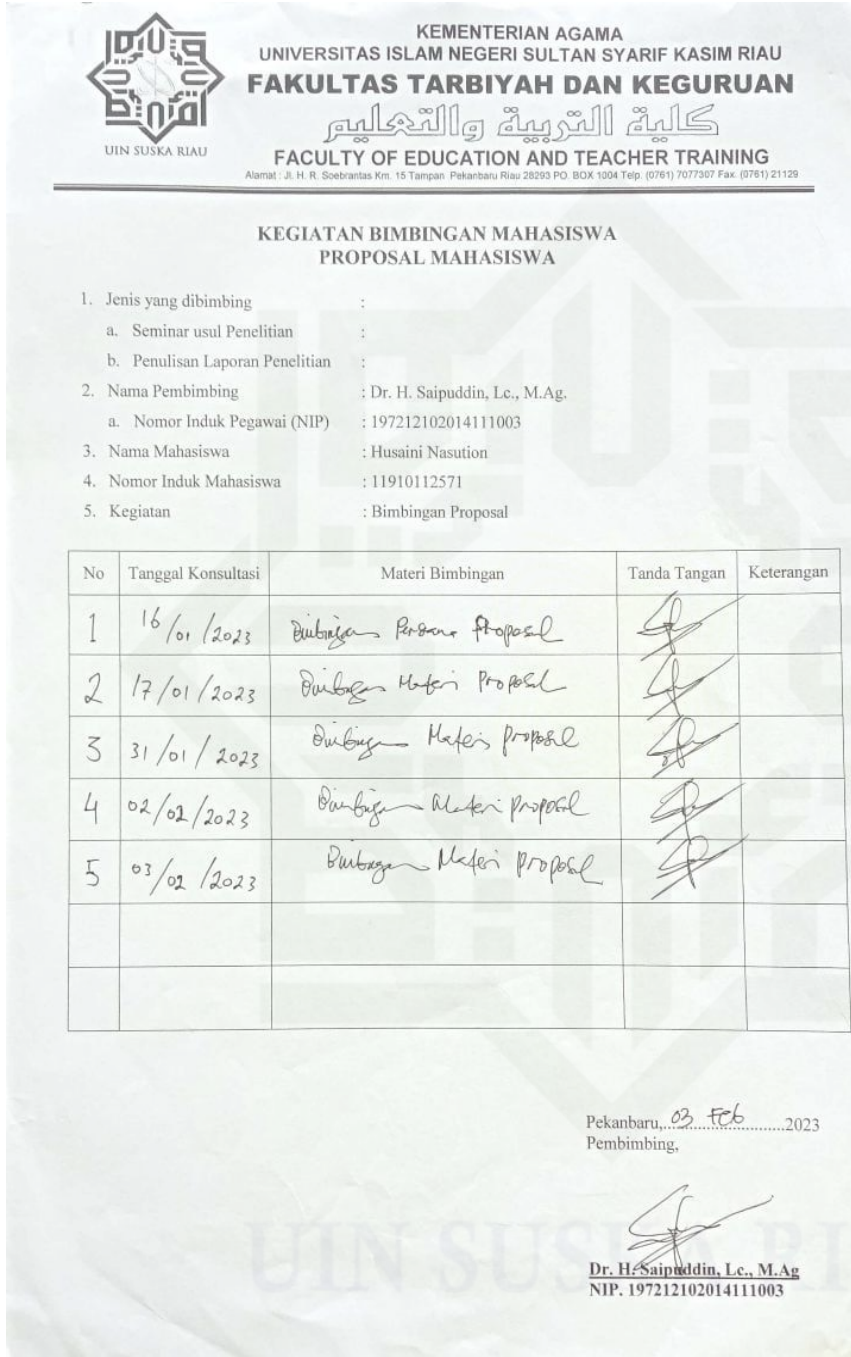 KEMENTERIAN AGAMA
UNIVERSITAS ISLAM NEGERI SULTAN SYARIF KASIM RIAU
FAKULTAS TARBIYAH DAN KEGURUAN
كلية التربية والتعليم
FACULTY OF EDUCATION AND TEACHER TRAINING
Alamat : Jl. H. R. Soebrantas Km. 15 Tampan Pekanbaru Riau 28293 PO. BOX 1004 Telp. (0761) 7077307 Fax. (0761) 21129
UIN SUSKA RIAU
KEGIATAN BIMBINGAN MAHASISWA
PROPOSAL MAHASISWA
1. Jenis yang dibimbing :
a. Seminar usul Penelitian :
b. Penulisan Laporan Penelitian :
2. Nama Pembimbing : Dr. H. Saipuddin, Lc., M.Ag.
a. Nomor Induk Pegawai (NIP) : 197212102014111003
3. Nama Mahasiswa : Husaini Nasution
4. Nomor Induk Mahasiswa : 11910112571
5. Kegiatan : Bimbingan Proposal
No Tanggal Konsultasi Materi Bimbingan Tanda Tangan Keterangan
1 16/01/2023 Bimbingan Perdana Proposal
2 17/01/2023 Bimbingan Materi Proposal
3 31/01/2023 Bimbingan Materi proposal
4 02/02/2023 Bimbingan Materi proposal
5 03/02/2023 Bimbingan Materi proposal
Pekanbaru,...03 Feb...........2023
Pembimbing,
Dr. H. Saipuddin, Lc., M.Ag
NIP. 197212102014111003
UIN SUSKA RI